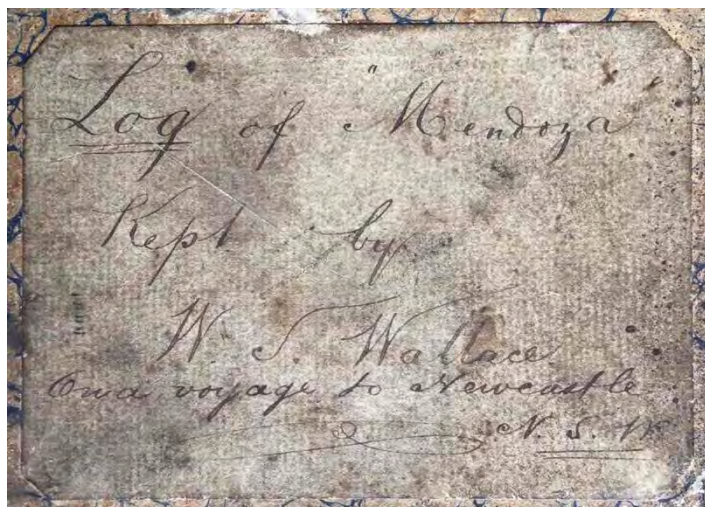 Log of "Mendoza
Kept by
W. S. Wallace
On a voyage to Newcastle
N. S. W